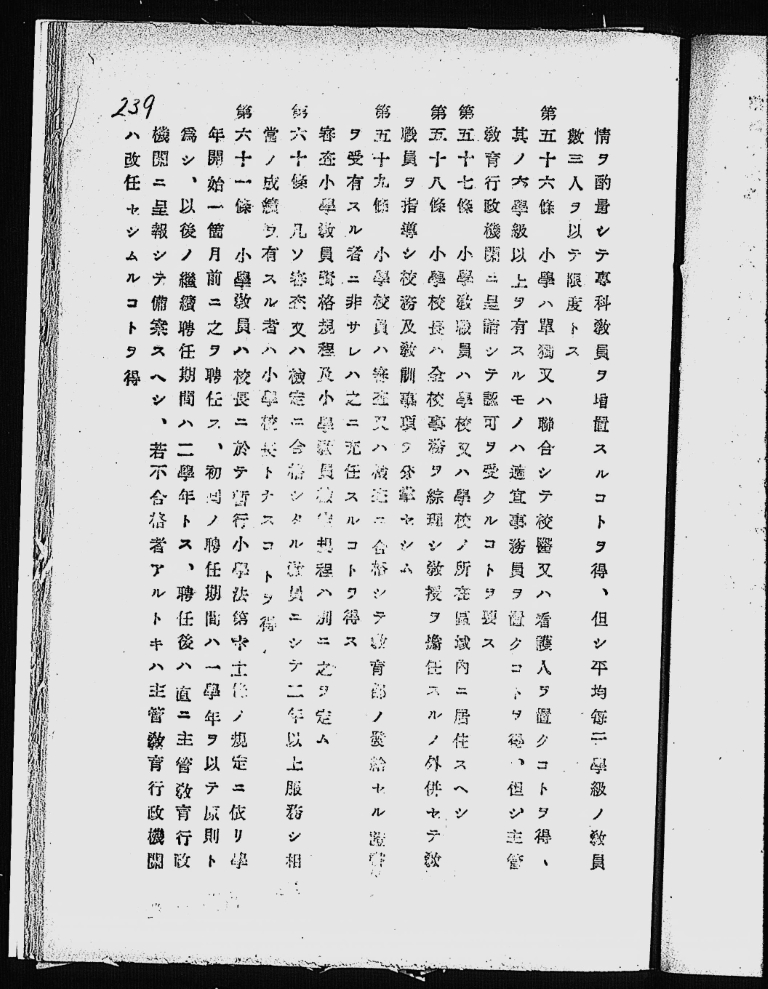 239
情ヲ酌量シテ專科敎員ヲ增置スルコトヲ得、但シ平均每二學級ノ敎員
數三人ヲ以テ限度トス
第五十六條　小學ハ單獨又ハ聯合シテ校醫又ハ看護人ヲ置クコトヲ得、
其ノ六學級以上ヲ有スルモノハ適宜事務員ヲ置クコトヲ得、但シ主管
敎育行政機關ニ呈請シテ認可ヲ受クルコトヲ要ス
第五十七條　小學敎職員ハ學校又ハ學校ノ所在區域內ニ居住スヘシ
第五十八條　小學校長ハ全校事務ヲ綜理シ敎授ヲ擔任スルノ外併セテ敎
職員ヲ指導シ校務及敎訓事項ヲ分掌セシム
第五十九條　小學校員ハ審査又ハ檢定ニ合格シテ敎育部ノ發給セル證書
ヲ受有スル者ニ非サレハ之ニ充任スルコトヲ得ス
審査小學敎員資格規程及小學敎員檢定規程ハ別ニ之ヲ定ム
第六十條　凡ソ審査又ハ檢定ニ合格シタル敎員ニシテ二年以上服務シ相
當ノ成績ヲ有スル者ハ小學校長トナスコトヲ得
第六十一條　小學敎員ハ校長ニ於テ暫行小學法第十二條ノ規定ニ依リ學
年開始一箇月前ニ之ヲ聘任ス、初囘ノ聘任期間ハ一學年ヲ以テ原則ト
爲シ、以後ノ繼續聘任期間ハ二學年トス、聘任後ハ直ニ主管敎育行政
機關ニ呈報シテ備案スヘシ、若不合格者アルトキハ主管敎育行政機關
ハ改任セシムルコトヲ得